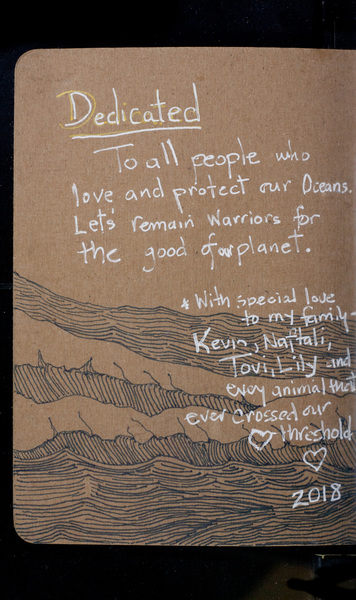 Dedicated
To all people who
love and protect our Oceans.
Let's remain warriors for
the good of our planet.
* With special love
to my family-
Kevin, Naftali,
Tovi, Lily and
every animal that
ever crossed our
threshold
2018